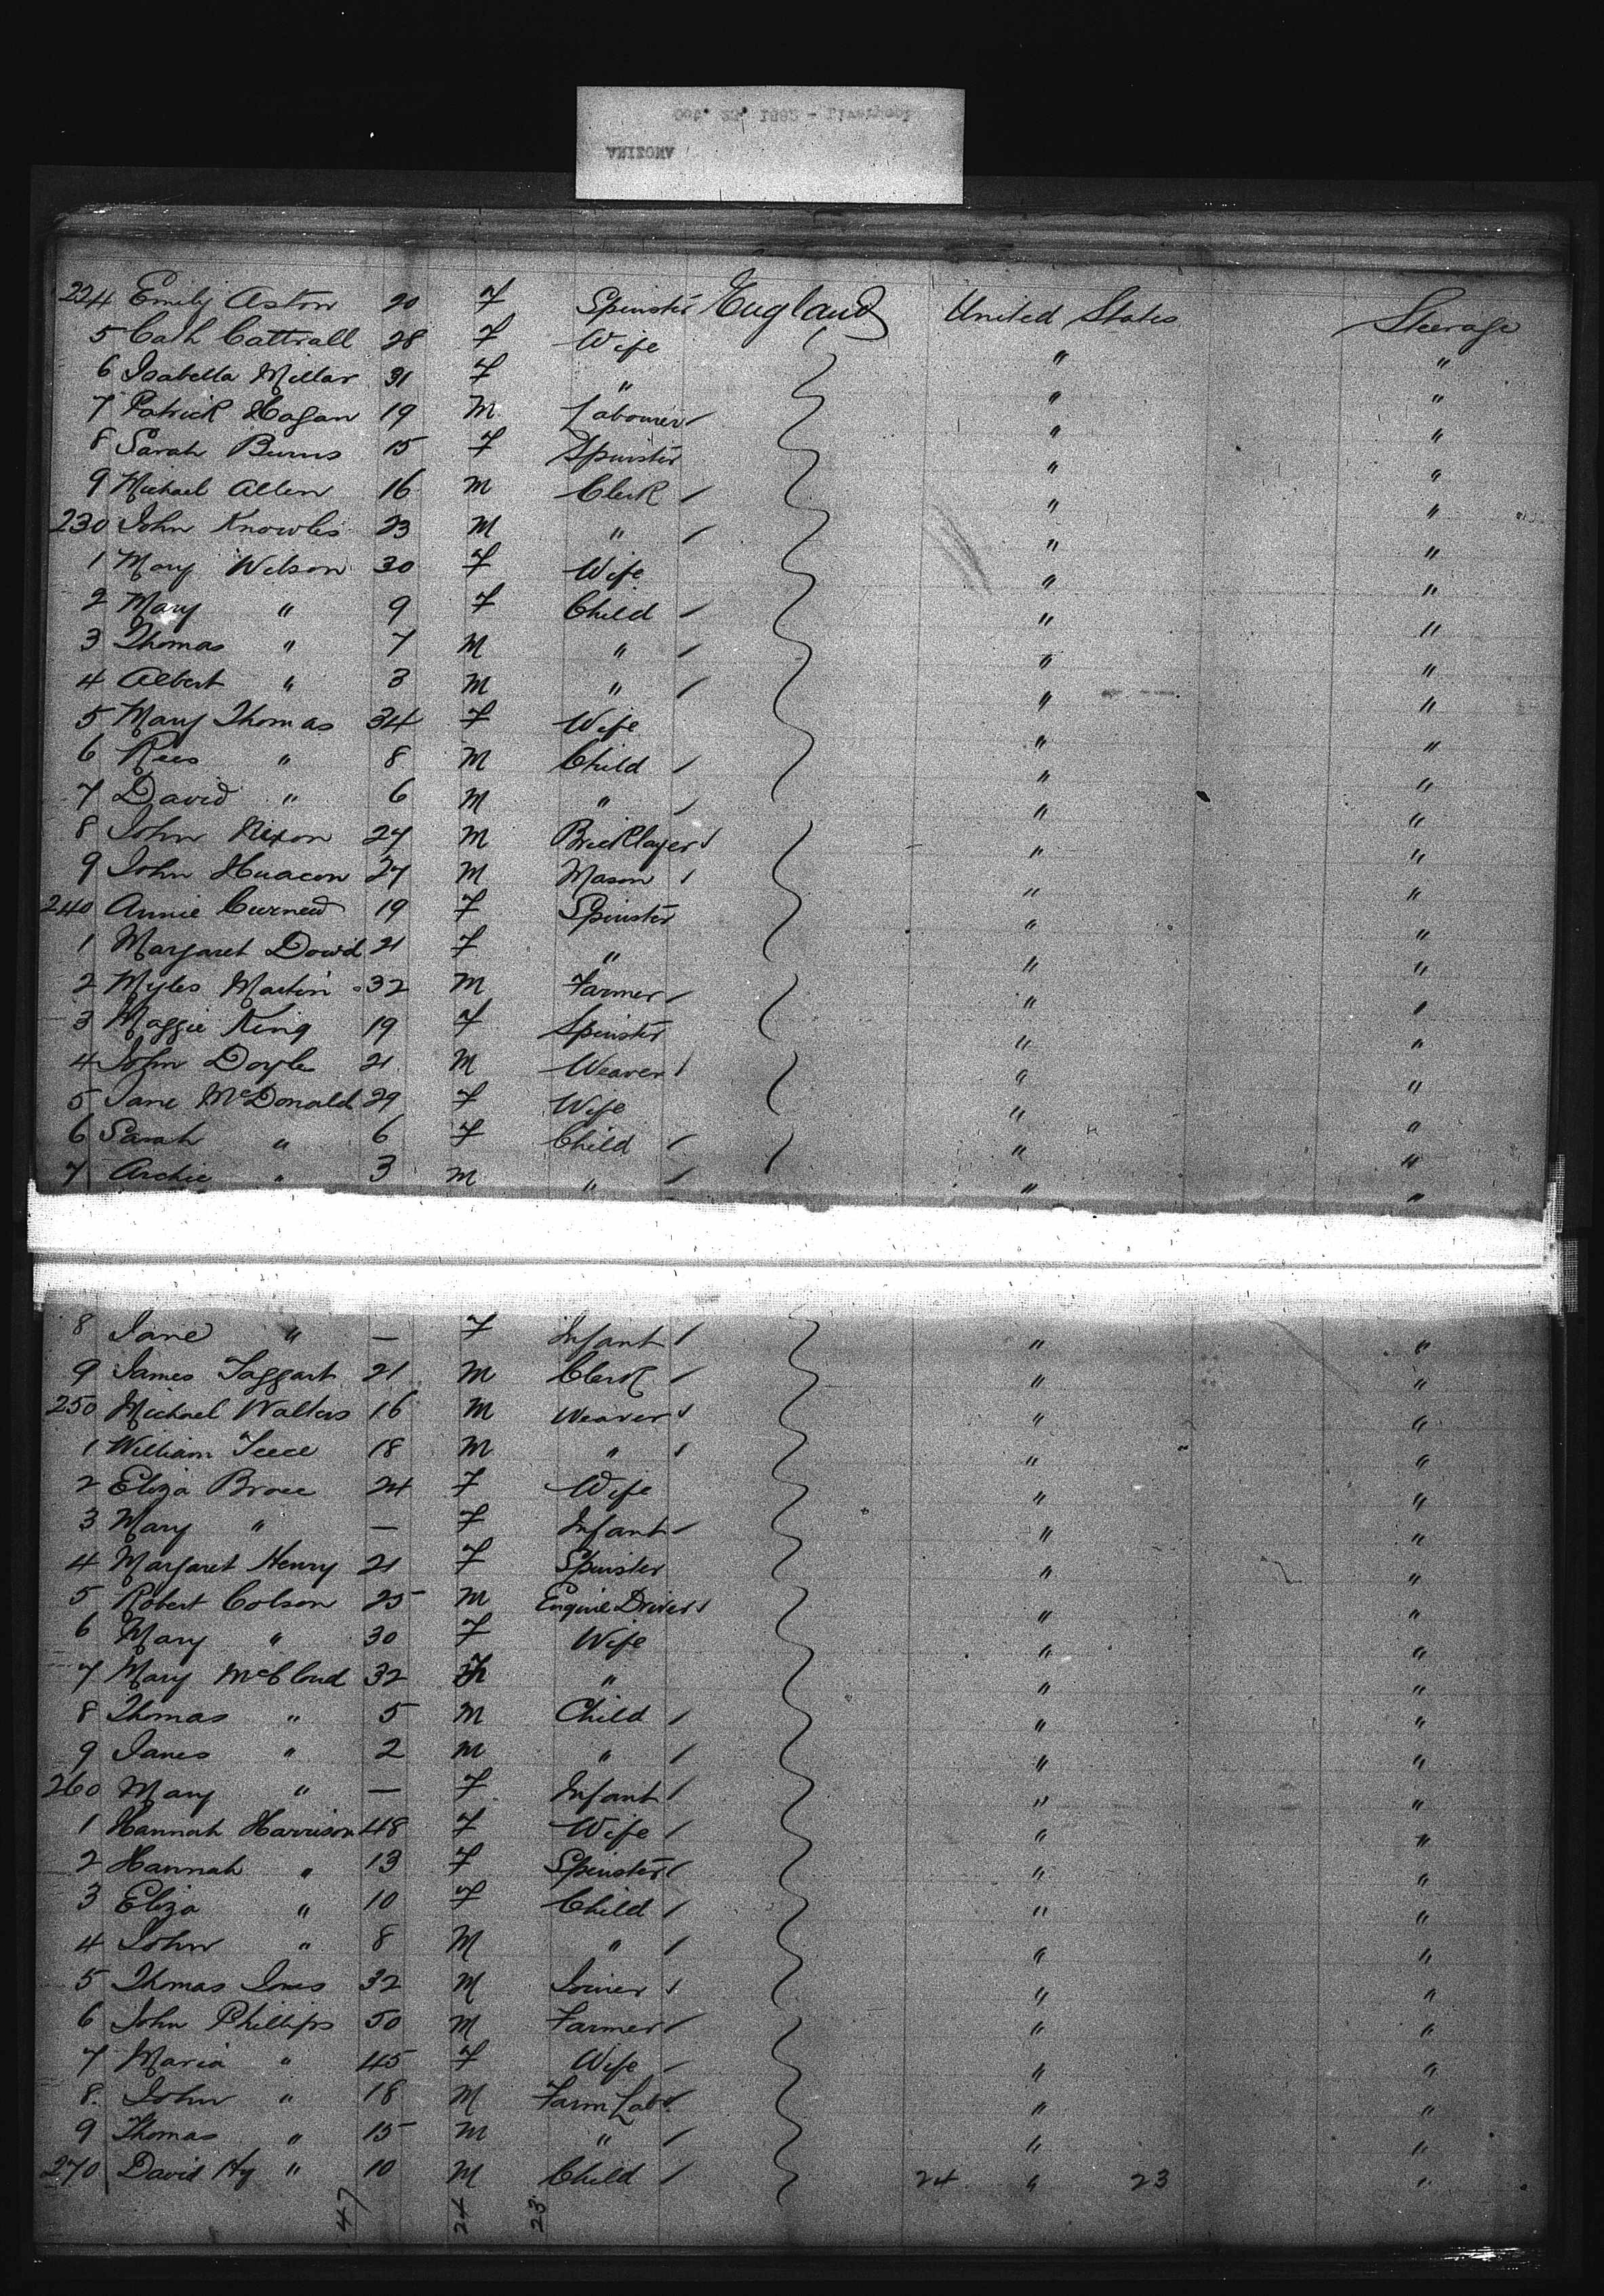 ARIZONA
224 Emily Aston 20 F Spinster England United States Steerage
5 Cath Cattrall 28 F Wife " "
6 Isabella Millar 31 F " " "
7 Patrick Hagan 19 M Labourer " "
8 Sarah Burns 15 F Spinster " "
9 Michael Allen 16 M Clerk " "
230 John Knowles 23 M " " "
1 Mary Wilson 30 F Wife " "
2 Mary " 9 F Child " "
3 Thomas " 7 M " " "
4 Albert " 3 M " " "
5 Mary Thomas 34 F Wife " "
6 Rees " 8 M Child " "
7 David " 6 M " " "
8 John Nixon 27 M Bricklayer " "
9 John 27 M Mason " "
240 Annie Curnew 19 F Spinster " "
1 Margaret Dowd 21 F " " "
2 Myles Martin 32 M Farmer " "
3 Maggie King 19 F Spinster " "
4 John Doyle 21 M Weaver " "
5 Jane McDonald 29 F Wife " "
6 Sarah " 6 F Child " "
7 Archie " 3 M " " "
8 Jane " — F Infant " "
9 James Taggart 21 M Clerk " "
250 Michael Walters 16 M Weaver " "
1 William Teece 18 M " " "
2 Eliza Brace 24 F Wife " "
3 Mary " — F Infant " "
4 Margaret Henry 21 F Spinster " "
5 Robert Colson 25 M Engine Driver " "
6 Mary " 30 F Wife " "
7 Mary McCloud 32 " " "
8 Thomas " 5 M Child " "
9 James " 2 M " " "
260 Mary " — F Infant " "
1 Hannah Harrison 48 F Wife " "
2 Hannah " 13 F Spinster " "
3 Eliza " 10 F Child " "
4 John " 8 M " " "
5 Thomas Jones 32 M Joiner " "
6 John Phillips 50 M Farmer " "
7 Maria " 45 F Wife " "
8 John " 18 M Farm Labr " "
9 Thomas " 15 M " " "
270 David Hy " 10 M Child 24 " 23 "
47 24 23